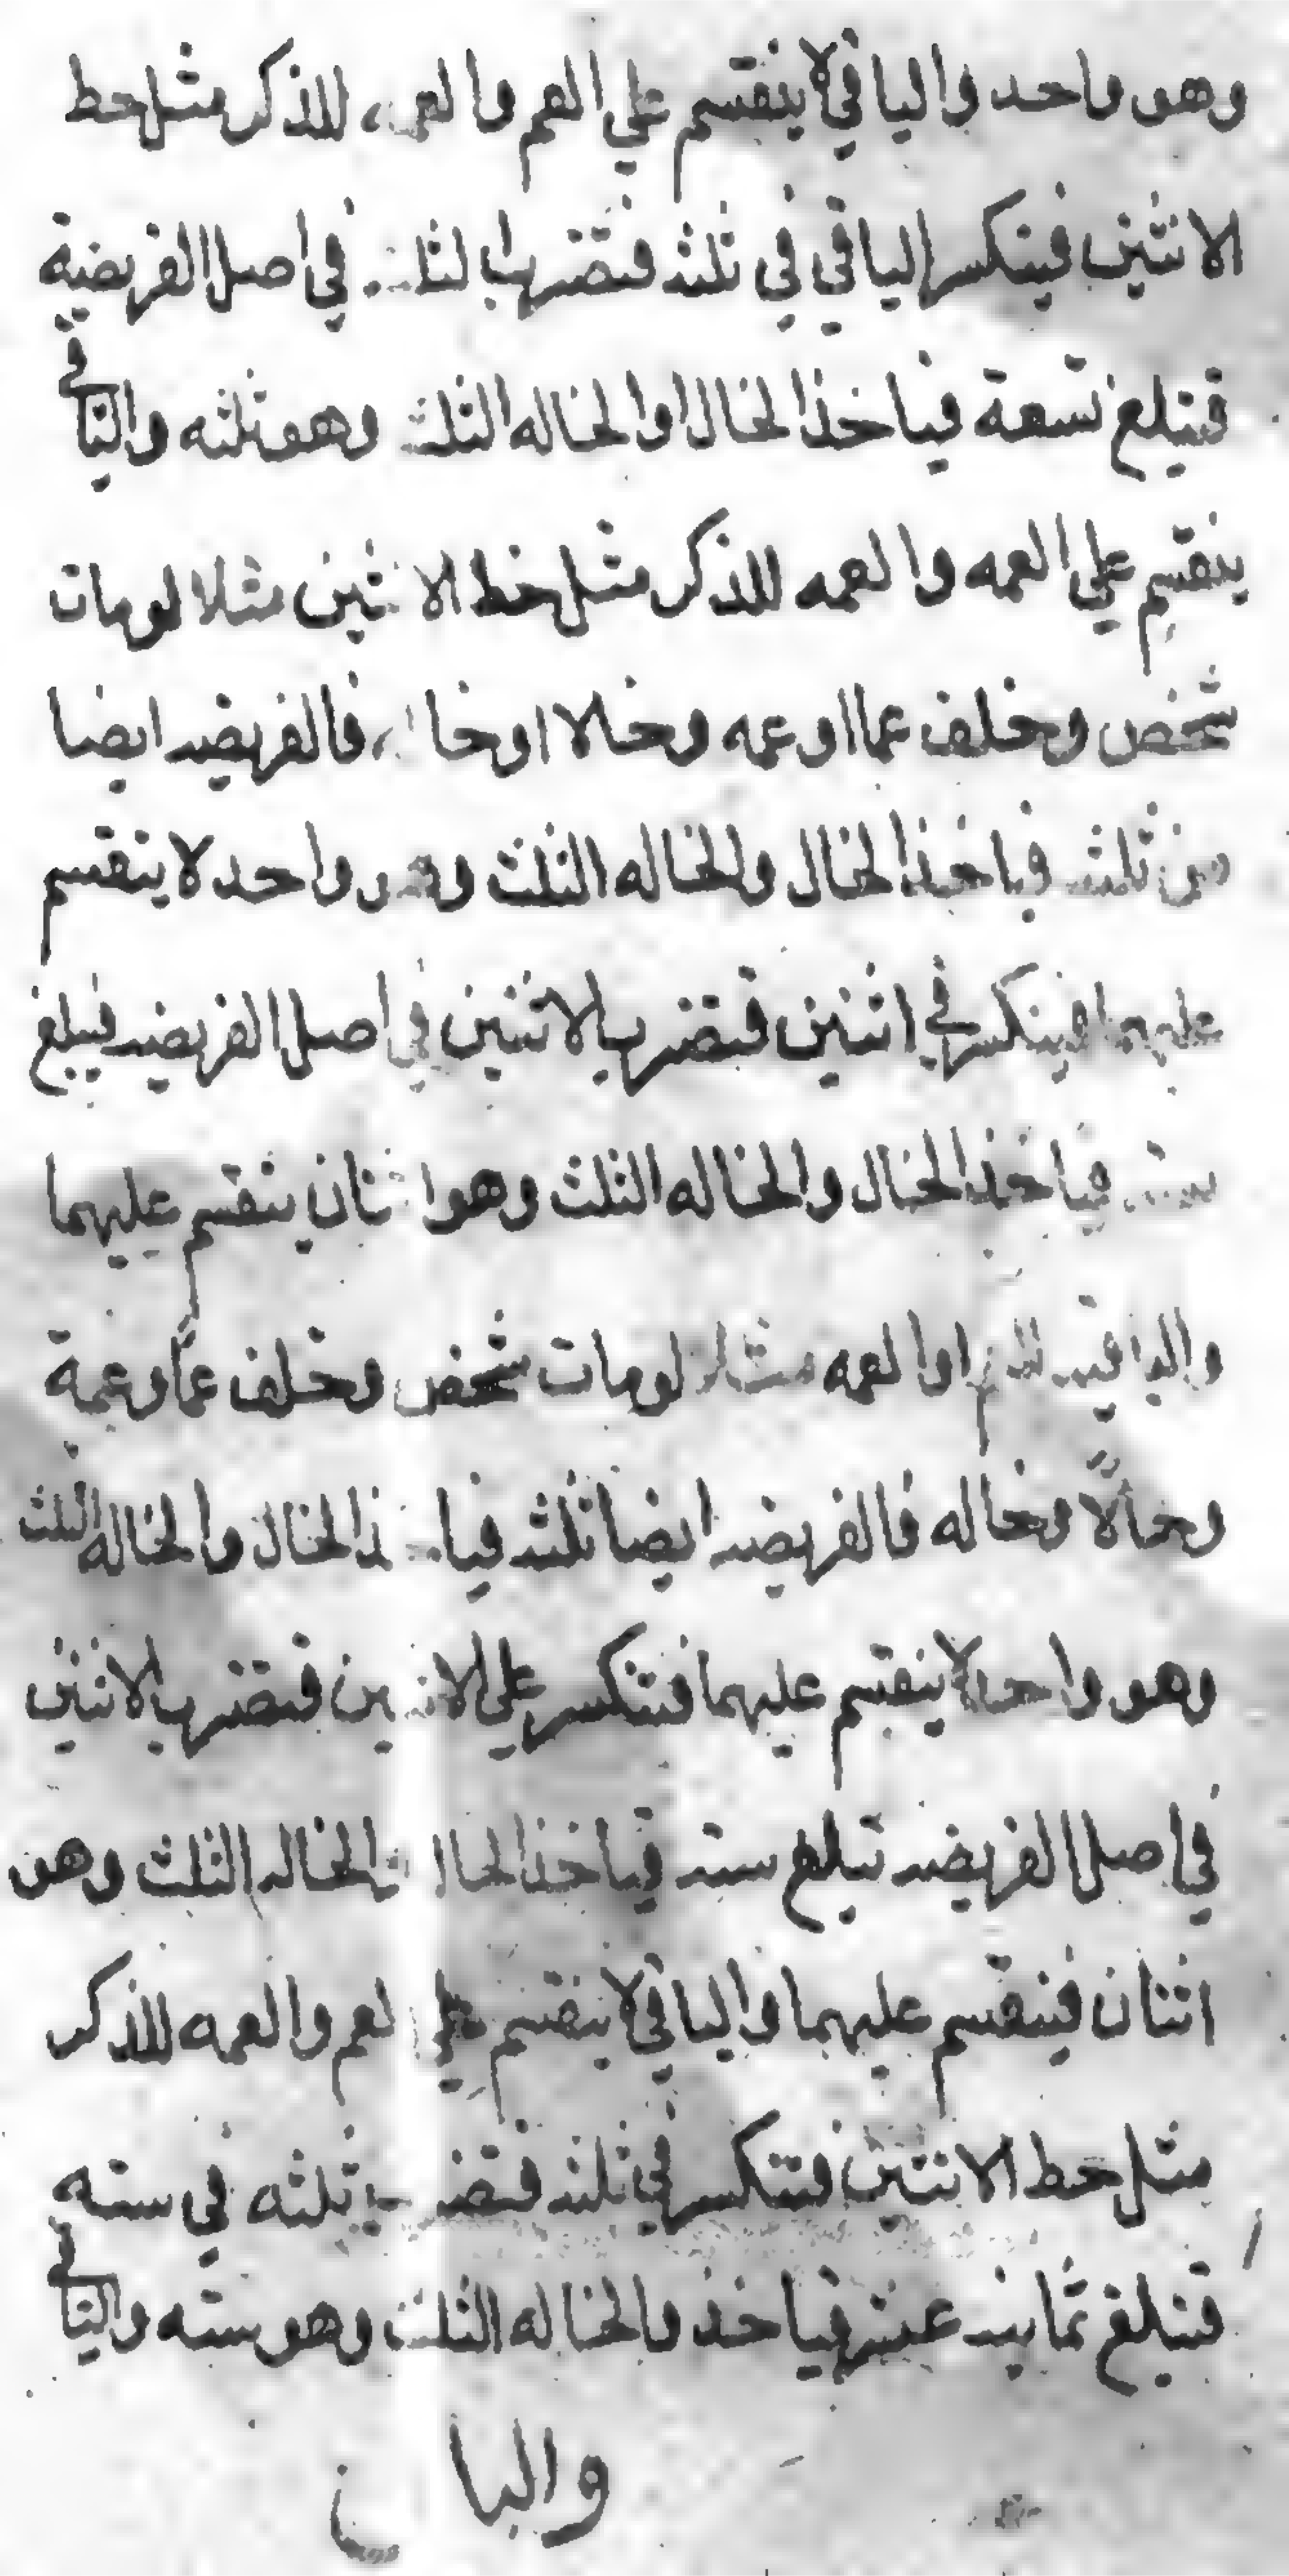 وهو واحد والباقي لا ينقسم علي العم والعمه للذكر مثل حط
الانثيين فينكسر الباقي في ثلثه فتضرب الثلثه في اصل الفريضة
فتبلغ تسعة فياخذ الخال او الخاله الثلث وهو ثلثه والباقي
ينقسم علي العمه والعمه للذكر مثل حظ الانثيين مثلا لو مات
شخص وخلف عما او عمه وخالا او خاله فالفريضه ايضا
من ثلثه فياخذ الخال والخاله الثلث وهو واحد لا ينقسم
عليهما فينكسر في اثنين فتضرب الاثنين في اصل الفريضه فيبلغ
سته فياخذ الخال والخاله الثلث وهو اثنان ينقسم عليهما
والباقيه للعم او العمه مثلا لو مات شخص وخلف عمًا وعمة
وخالًا وخاله فالفريضه ايضا ثلثه فياخذ الخال والخاله الثلث
وهو واحد لا ينقسم عليهما فتنكسر علي الاثنين فتضرب الاثنين
في اصل الفريضه تبلغ سته فياخذ الخال والخاله الثلث وهو
اثنان فينقسم عليهما والباقي لا ينقسم علي العم والعمه للذكر
مثل حط الانثيين فتنكسر في ثلثه فتضرب ثلثه في سته
فتبلغ ثمانيه عشر فياخذ والخاله الثلث وهو سته والباقي